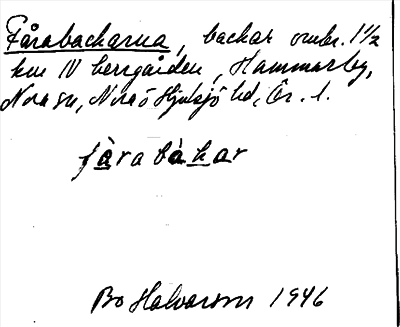 Fårabackarna, backar omkr. 1 1/2
km N herrgården, Hammarby,
Nora sn, Nora o Hjulsjö hd, Ör. l.
fàrabàkar
Bo Halvarson 1946